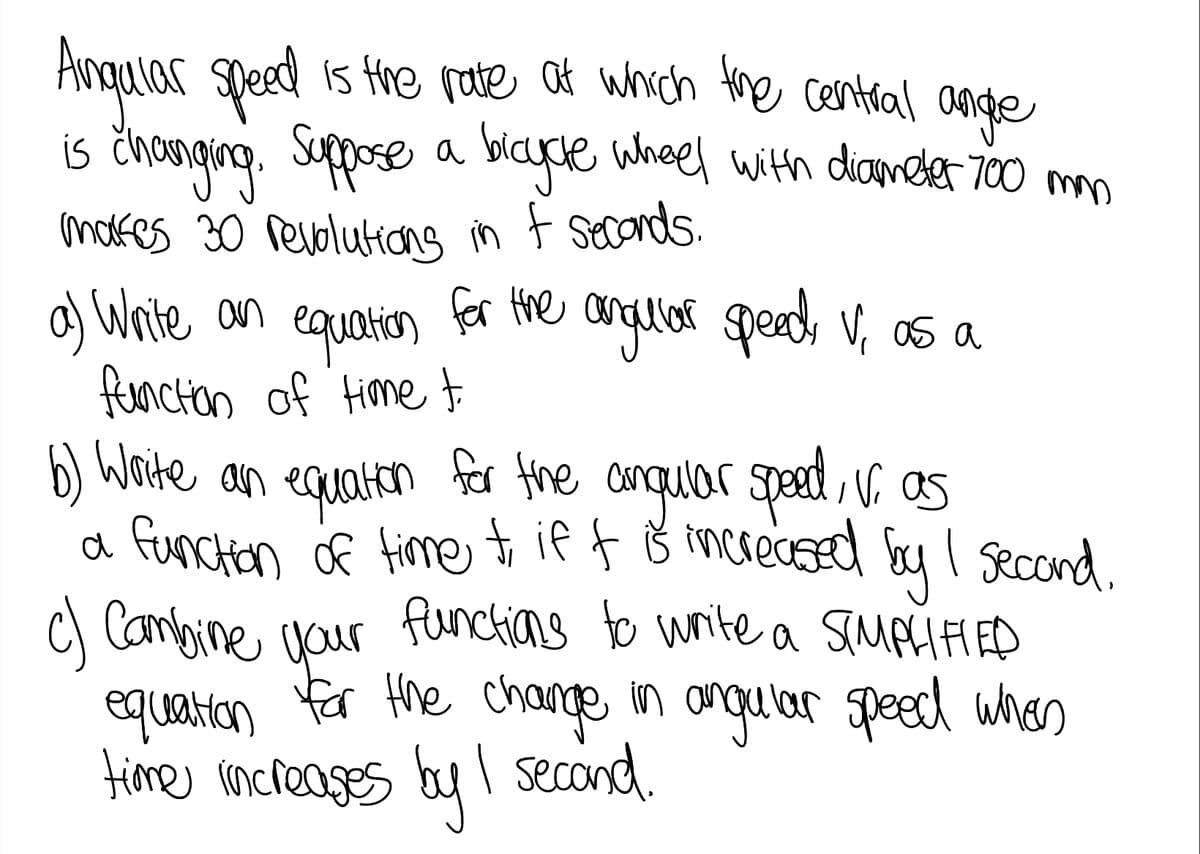 Angular speed is the rate at which the central ange
is changing. Suppose a bicycle wheel with diameter 700 mm
makes 30 revolutions in t seconds.
a) Write an equation for the angular speed, v, as a
function of time t.
b) Write an equation for the angular speed, v, as
a function of time t, if t is increased by 1 second.
c) Combine your functions to write a SIMPLIFIED
equation for the change in angular speed when
time increases by 1 second.